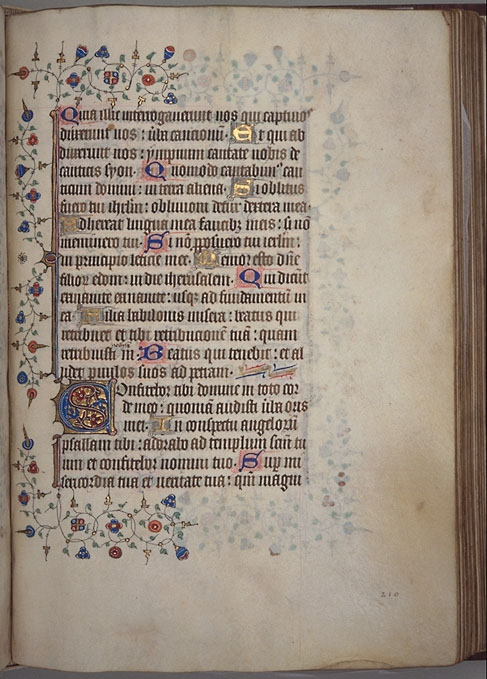 Quia illic interrogauerunt nos qui captiuos
duxerunt nos : uba cantionu. Et qui ab
duxerunt nos : ympnum cantate nobis de
canticis syon. Quomodo cantabim' can
ticum domini : in terra aliena. Si oblitus
fuero tui ihrlm : obliuioni detur dextera mea.
Adhereat lingua mea faucibz meis : si no
meminero tui. Si no posuero tui ierlm :
in principio leticie mee. Memor esto dne
filior edom : in die iherusalem. Qui dicut
exinanite exinanite : usqz ad fundamentu in
ea. Filia babilonis misera : beatus qui
retribuet tibi retributione tua : quam
retribuisti nobis. Beatus qui tenebit : et al
lidet paruulos suos ad petram.
Confitebor tibi domine in toto cor
de meo : quonia audisti uba oris
mei. In conspectu angelorum
psallam tibi : adorabo ad templum sanctu tu
um et confitebor nomini tuo. Super mi
sericordia tua et ueritate tua : qm magni
210